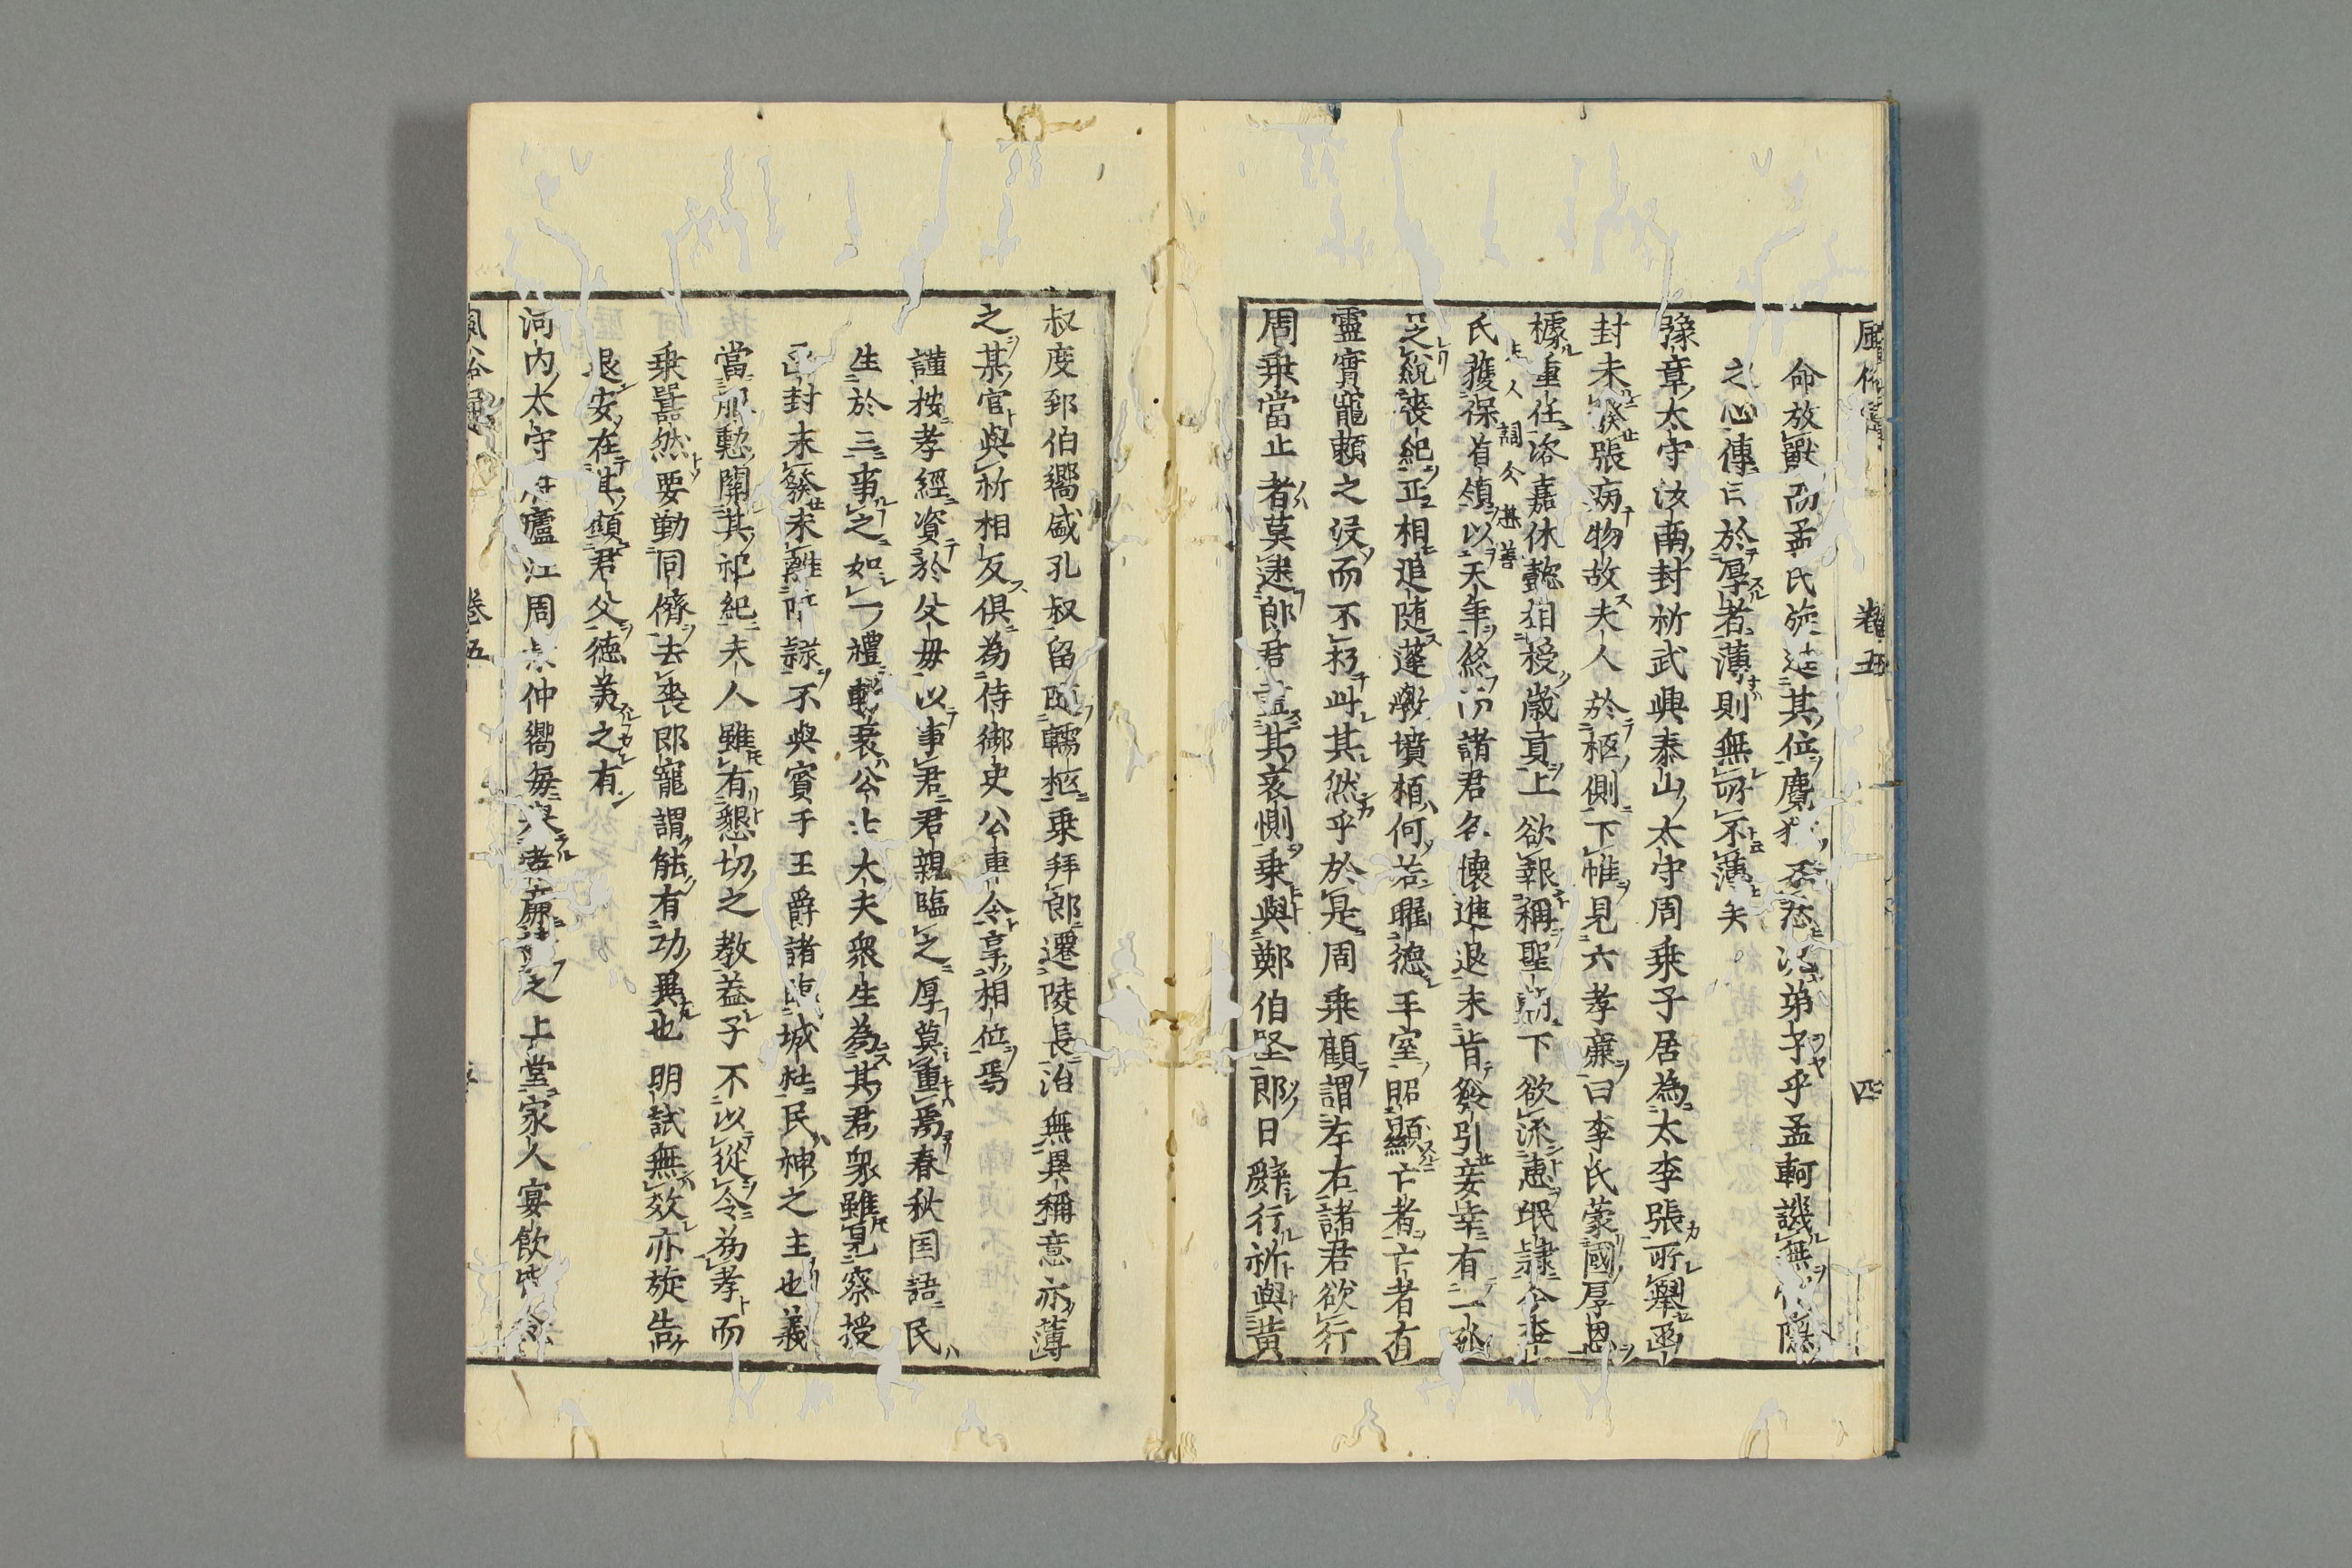 風俗通 卷五 四
命放獸而孟氏旋進其位麑猶不忍況弟子乎孟軻譏無惻隱
之心傳曰於厚者薄則無所不薄矣
豫章太守汝南封祈武興泰山太守周乘子居為太李張所舉函
封未發張病物故夫人於柩側下帷見六孝廉曰李氏蒙國厚恩
據重任洛嘉休懿相授歲貢上欲報稱聖朝下欲流惠氓隸今李
氏獲保首領以天年終而諸君各懷進退未肯發引妾幸有三孤
上人詞令甚善
足統喪紀正相追隨蓬蓽墳柏何若曜德王室昭顯亡者亡者有
靈實寵賴之沒而不朽此其然乎於是周乘顧謂左右諸君欲行
周乘當止者莫逮郎君盡其哀惻乘與鄭伯堅即日辭行祈與黃
叔度郅伯嚮盛孔叔留隨轜柩乘拜郎遷陵長治無異稱意亦薄
之某官與祈相反俱為侍御史公車令享相位焉
謹按孝經資於父母以事君君親臨之厚莫重焉春秋国語民
生於三事之如一禮斬衰公士大夫眾生為其君眾雖見察授
函封未發未離陪隸不與賓于王爵諸臨城社民神之主也義
當服勤關其祀紀夫人雖有懇切之教蓋子不以從令為孝而
乘囂然要勤同儕去喪即寵謂能有功異也明試無效亦旋告
退安在其顯君父德美之有
河內太守廬江周仲嚮每舉孝廉之上堂家人宴飲皆令
風俗通 卷五